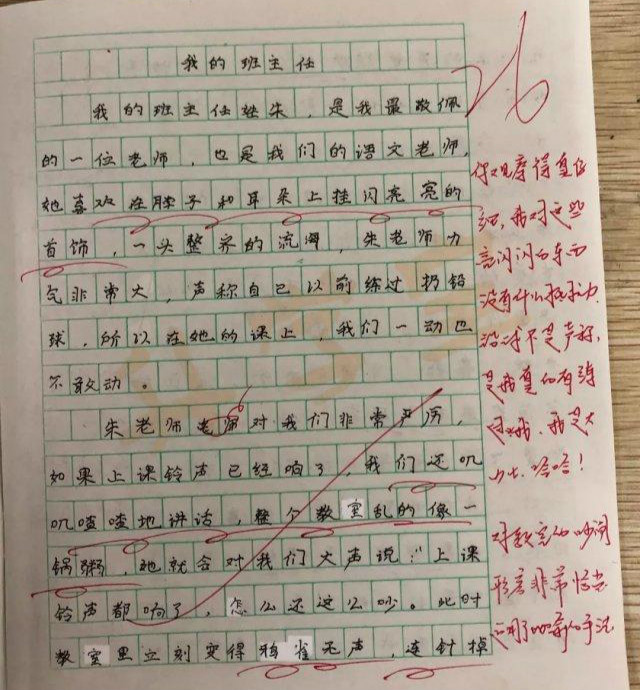 我的班主任
26
我的班主任姓朱，是我最敬佩
的一位老师，也是我们的语文老师，
她喜欢在脖子和耳朵上挂闪亮亮的
首饰，一头整齐的流海，朱老师力
气非常大，声称自己以前练过扔铅
球，所以在她的课上，我们一动也
不敢动。
朱老师老师对我们非常严厉，
如果上课铃声已经响了，我们还叽
叽喳喳地讲话，整个教室乱的像一
锅粥，她就会对我们大声说："上课
铃声都响了，怎么还这么吵。此时
教室里立刻变得鸦雀无声，连针掉
你观察得真仔
细，我对这些
亮闪闪的东西
没有什么抵抗力
不是声称，
是我真的有练
过哦，我是大
力士，哈哈！
对教室的吵闹
形容非常恰当
运用了的手法